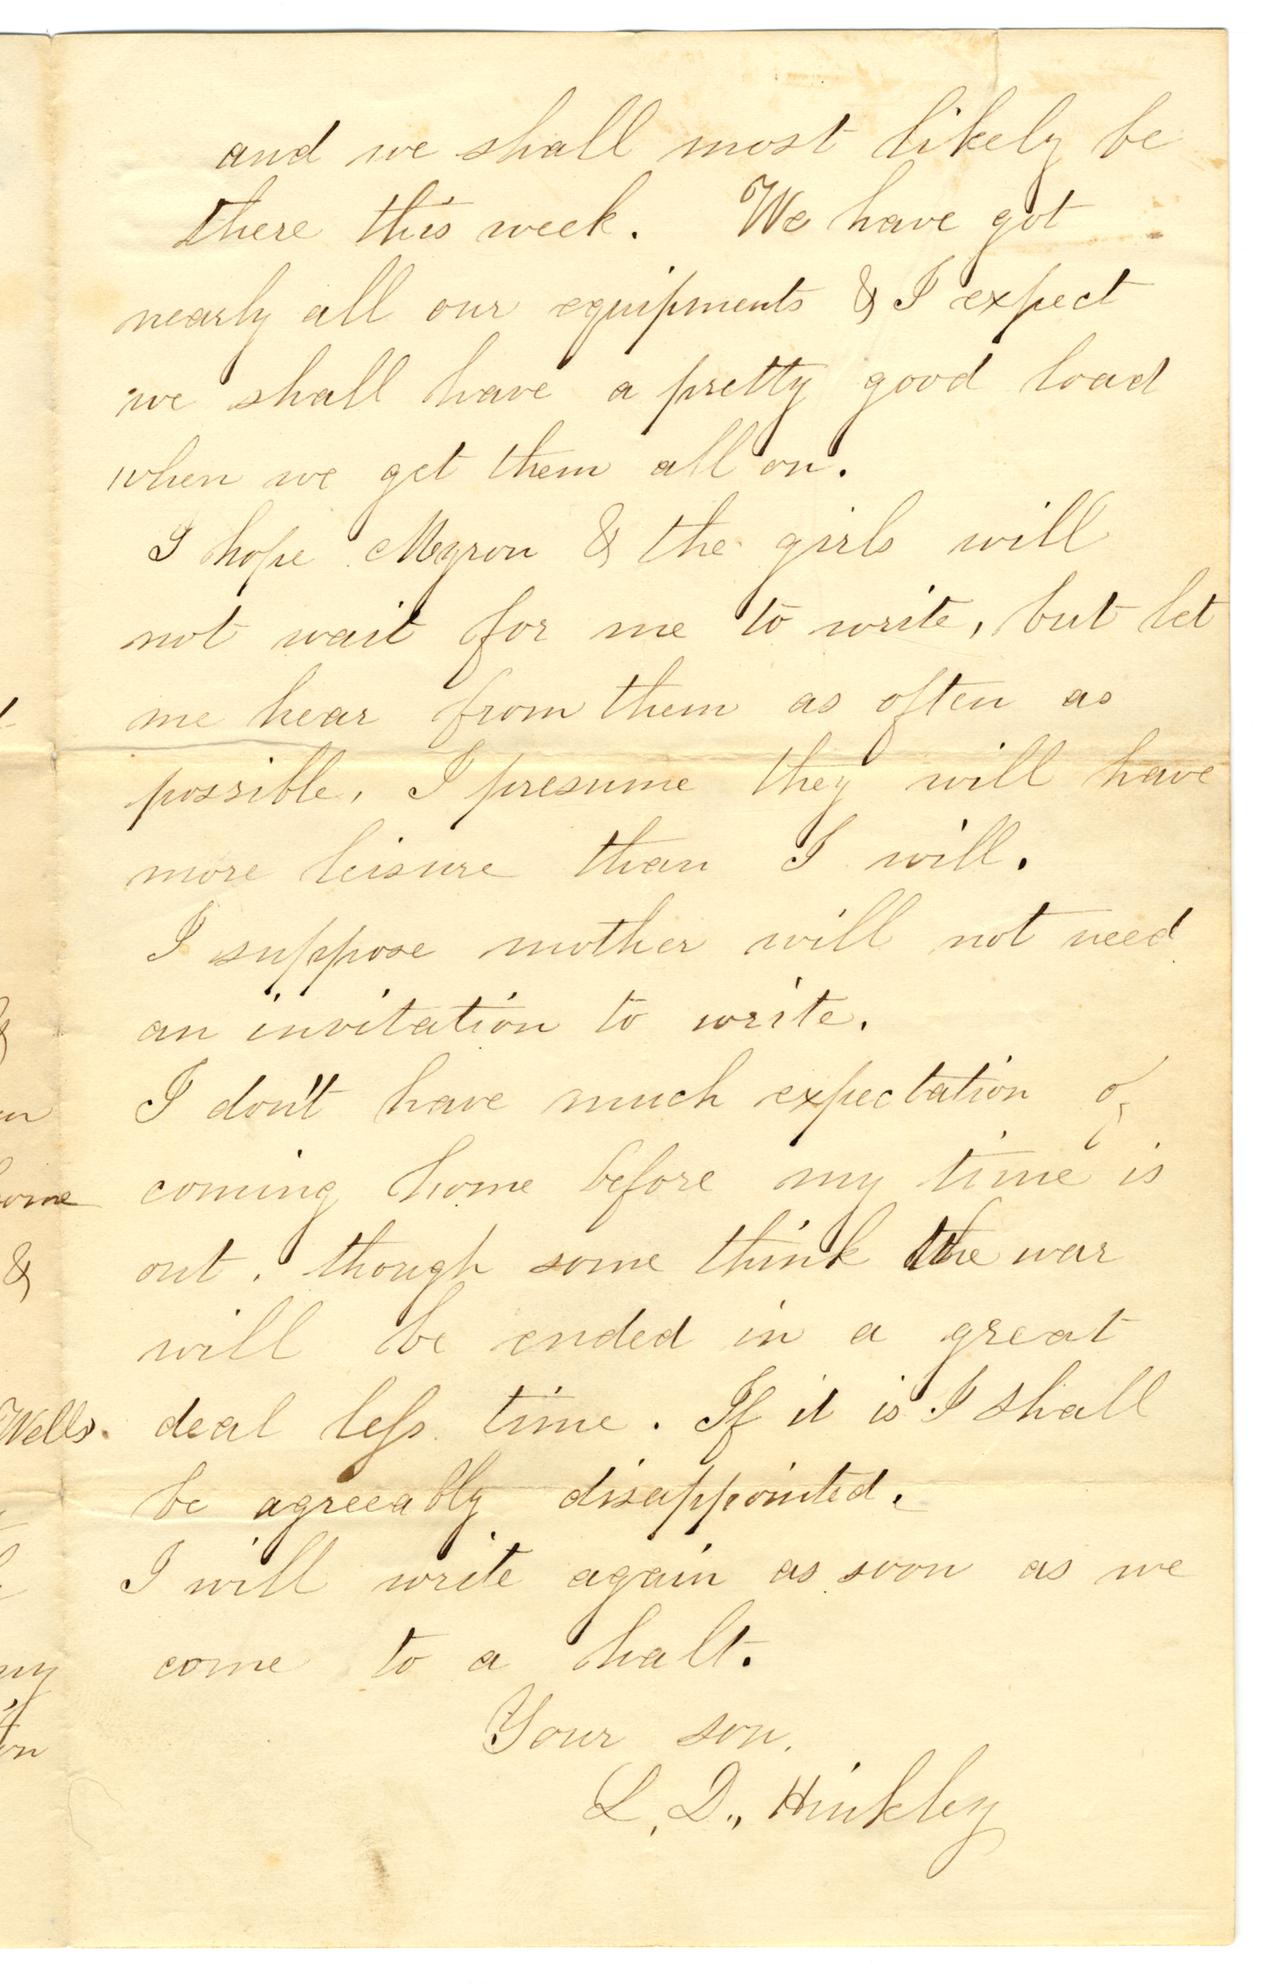 and we shall most likely be
there this week. We have got
nearly all our equipments & I expect
we shall have a pretty good load
when we get them all on.
I hope Myron & the girls will
not wait for me to write, but let
me hear from them as often as
possible, I presume they will have
more leisure than I will.
I suppose mother will not need
an invitation to write.
I don't have much expectation of
coming home before my time is
out. though some think the war
will be ended in a great
deal less time. If it is I shall
be agreeably disappointed.
I will write again as soon as we
come to a halt.
Your son.
L. D., Hinkley
&
Wells.